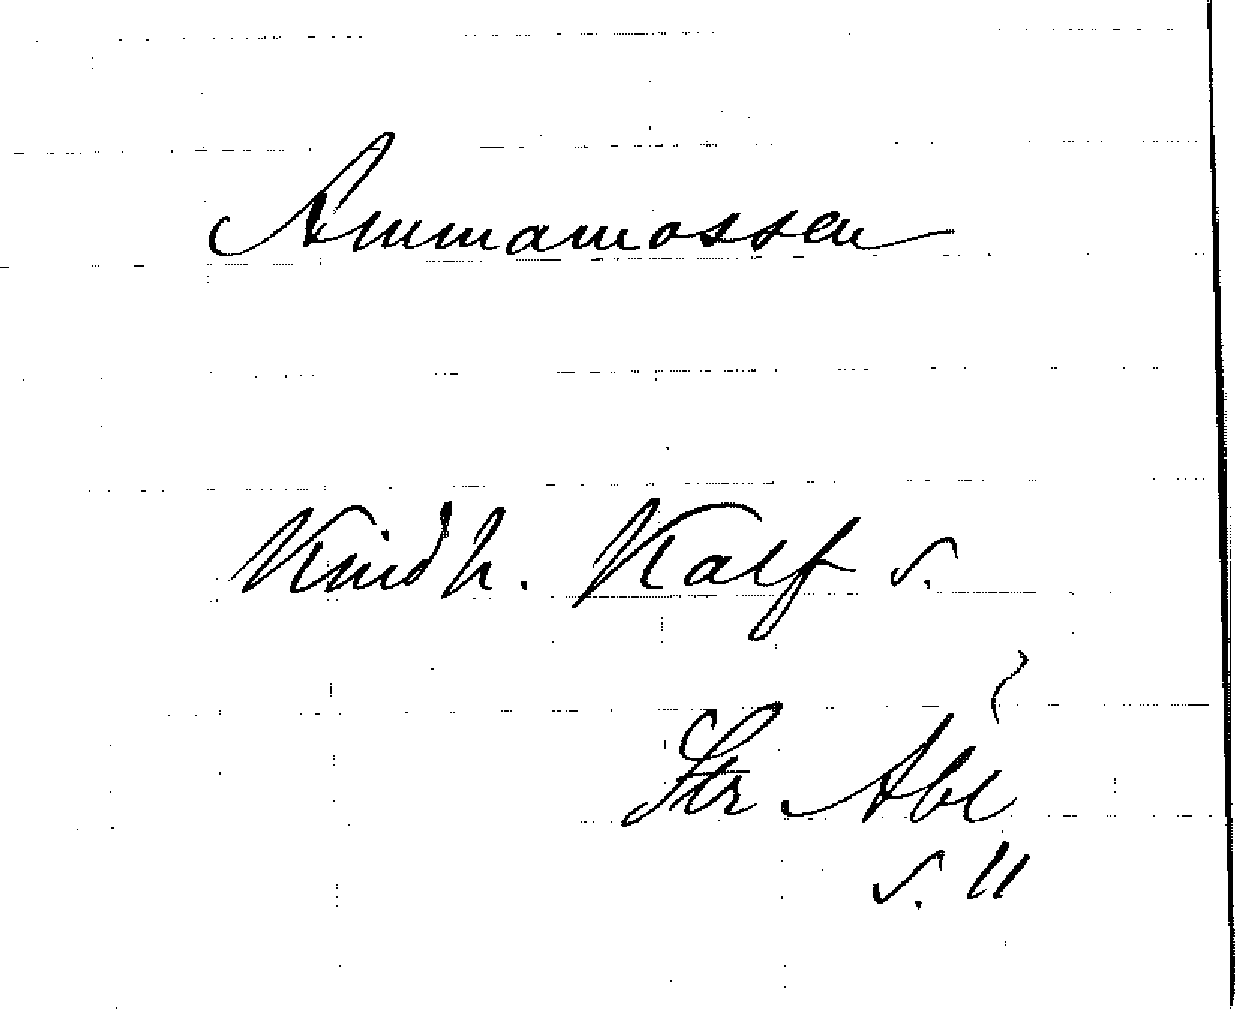 Ammamossen
Kind h. Kalf s.
Str Abl
s. 11